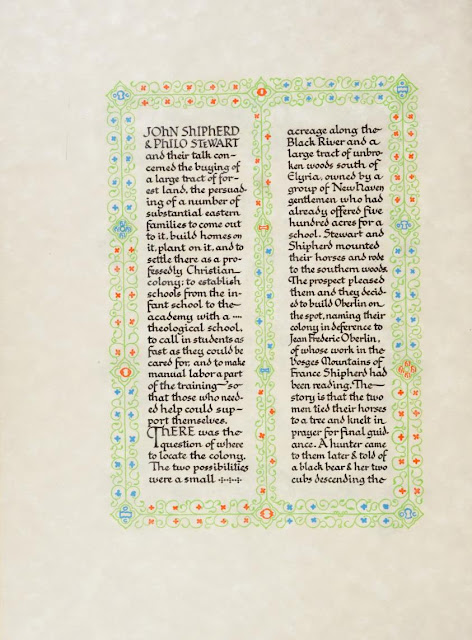 JOHN SHIPHERD
& PHILO STEWART
and their talk con-
cerned the buying of
a large tract of for-
est land, the persuad-
ing of a number of
substantial eastern
families to come out
to it, build homes on
it, plant on it, and to
settle there as a pro-
fessedly Christian
colony; to establish
schools from the in-
fant school to the
academy with a
theological school,
to call in students as
fast as they could be
cared for, and to make
manual labor a part
of the training—so
that those who need-
ed help could sup-
port themselves.
THERE was the
question of where
to locate the colony.
The two possibilities
were a small
acreage along the
Black River and a
large tract of unbro-
ken woods south of
Elyria, owned by a
group of New Haven
gentlemen who had
already offered five
hundred acres for a
school. Stewart and
Shipherd mounted
their horses and rode
to the southern woods.
The prospect pleased
them and they decid-
ed to build Oberlin on
the spot, naming their
colony in deference to
Jean Frederic Oberlin,
of whose work in the
Vosges Mountains of
France Shipherd had
been reading. The
story is that the two
men tied their horses
to a tree and knelt in
prayer for final guid-
ance. A hunter came
to them later & told of
a black bear & her two
cubs descending the